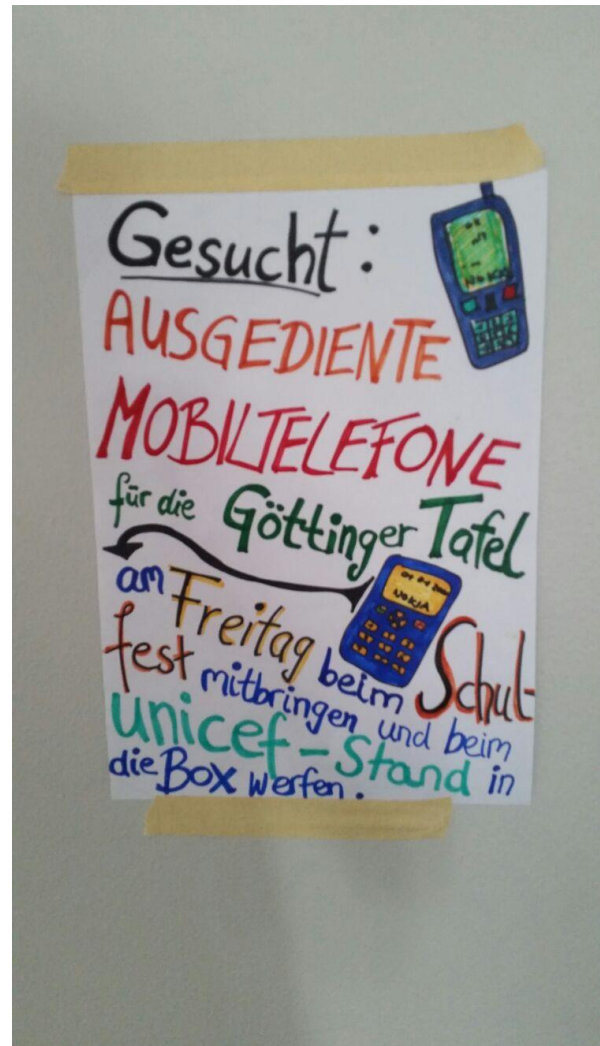 Gesucht:
NOKIA
AUSGEDIENTE
MOBILTELEFONE
für die Göttinger Tafel
NOKIA
am Freitag beim Schul-
fest mitbringen und beim
unicef-Stand in
die Box werfen.